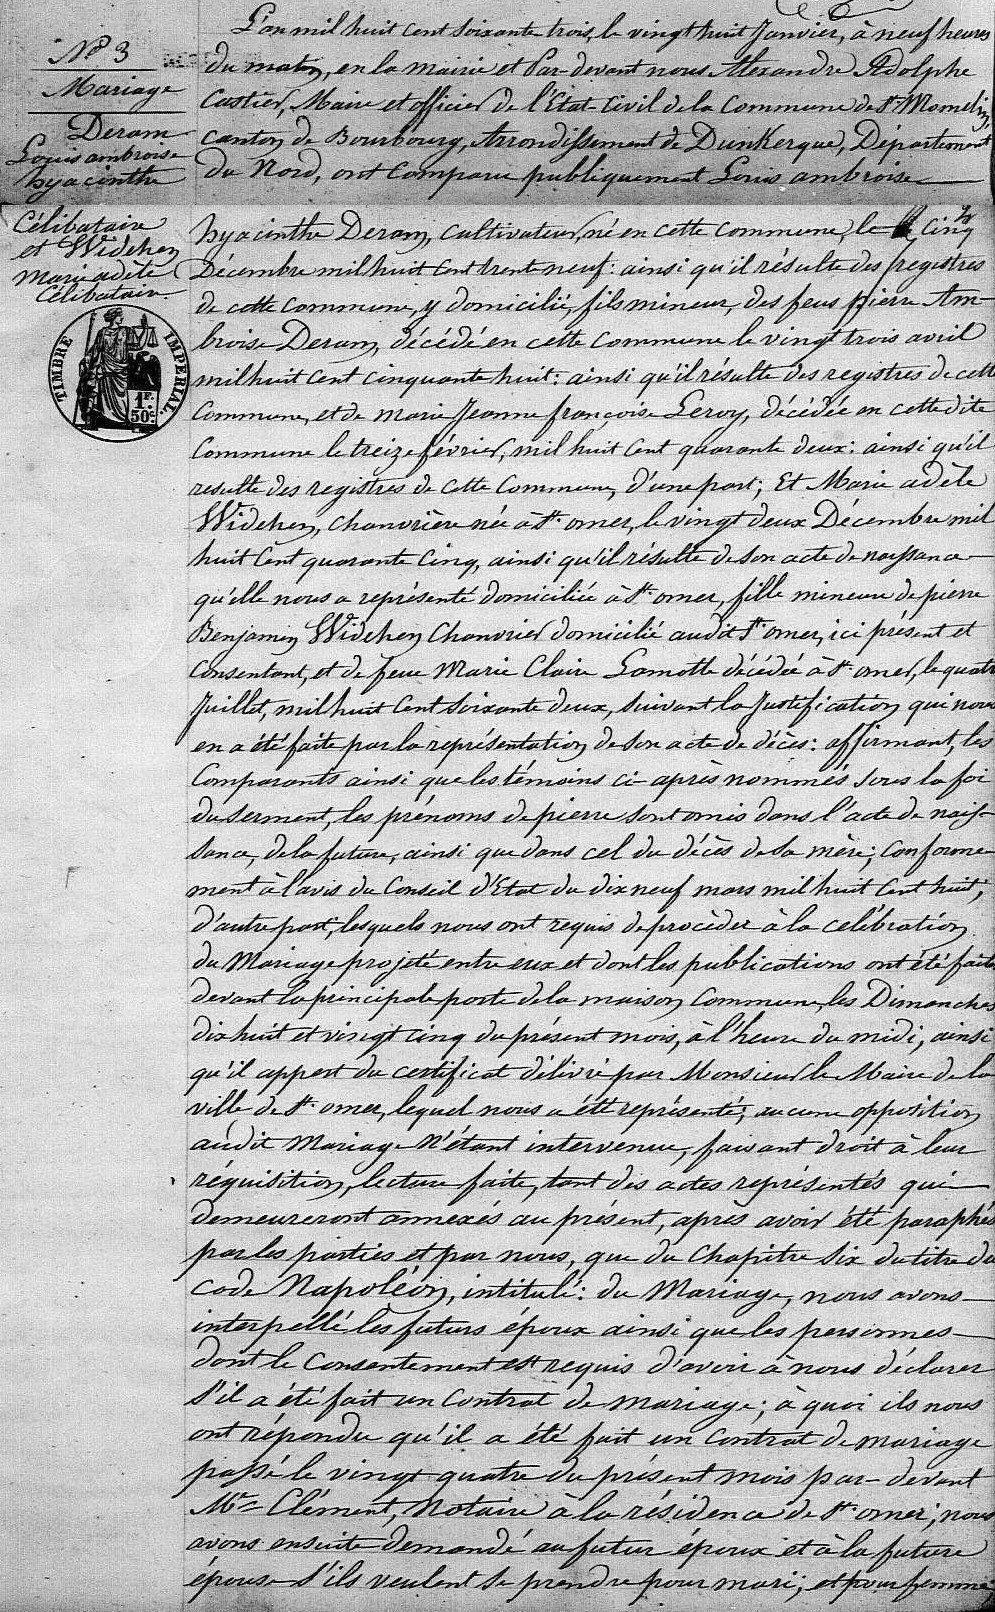 N° 3
Mariage
Deram
Louis ambroise
hyacinthe
Célibataire
et Widehen
Marie adèle
Célibataire.
TIMBRE IMPERIAL
1F.
50c.
L'an mil huit cent soixante trois, le vingt huit Janvier, à neuf heures
du matin, en la mairie et Par-devant nous Alexandre Adolphe
Castier, Maire et officier de l'Etat-Civil de la Commune de St. Momelin
canton de Bourbourg, Arrondissement de Dunkerque, Département
du Nord, ont Comparu publiquement Louis ambroise
hyacinthe Deram, cultivateur, né en cette commune, le cinq
Décembre mil huit Cent trente neuf: ainsi qu'il résulte des registres
de cette commune, y domicilié, fils mineur, des feus pierre Am-
broise Deram, décédé en cette commune le vingt trois avril
mil huit Cent cinquante huit: ainsi qu'il résulte des registres de cette
Commune, et de marie Jeanne françoise Leroy, décédée en cette dite
Commune le treize février, mil huit Cent quarante deux: ainsi qu'il
resulte des registres de cette Commune, d'une part; Et Marie adèle
Widehen, chanvrière née à St. omer, le vingt deux Décembre mil
huit Cent quarante Cinq, ainsi qu'il résulte de son acte de naissance
qu'elle nous a représenté domiciliée à St. omer, fille mineure de pierre
Benjamin Widehen Chanvrier domicilié audit St. omer, ici présent et
Consentant, et de feue Marie Claire Lamotte décédée à St. omer, le quatre
Juillet, mil huit Cent Soixante deux, suivant la Justification qui nous
en a été faite par la représentation de son acte de décès: affirmant, les
Comparants ainsi que les témoins ci-après nommés sous la foi
du Serment, les prénoms de pierre sont omis dans l'acte de nais-
sance, de la future, ainsi que dans cel du décès de sa mère; Conformé-
ment à l'avis du Conseil d'Etat du dix neuf mars mil huit Cent huit;
d'autre part; lesquels nous ont requis de procéder à la célébration
du Mariage projeté entre eux et dont les publications ont été faites
devant la principale porte de la maison Commune, les Dimanches
dix huit et vingt cinq du présent mois, à l'heure du midi, ainsi
qu'il appert du certificat délivré par Monsieur le Maire de la
ville de St. omer, lequel nous a été représenté; aucune opposition
audit Mariage N'étant intervenue, faisant droit à leur
réquisition, lecture faite, tant des actes représentés qui
demeureront annexés au présent, après avoir été paraphés
par les parties et par nous, que du Chapitre six du titre du
Code Napoléon, intitulé: du Mariage, nous avons
interpellé les futurs époux ainsi que les personnes
dont le Consentement est requis d'avoir à nous déclarer
s'il a été fait un Contrat de mariage; à quoi ils nous
ont répondu qu'il a été fait un Contrat de mariage
passé le vingt quatre du présent mois par-devant
Me Clément, Notaire à la résidence de St. omer; nous
avons ensuite demandé au futur époux et à la future
épouse s'ils veulent se prendre pour mari; et pour femme;